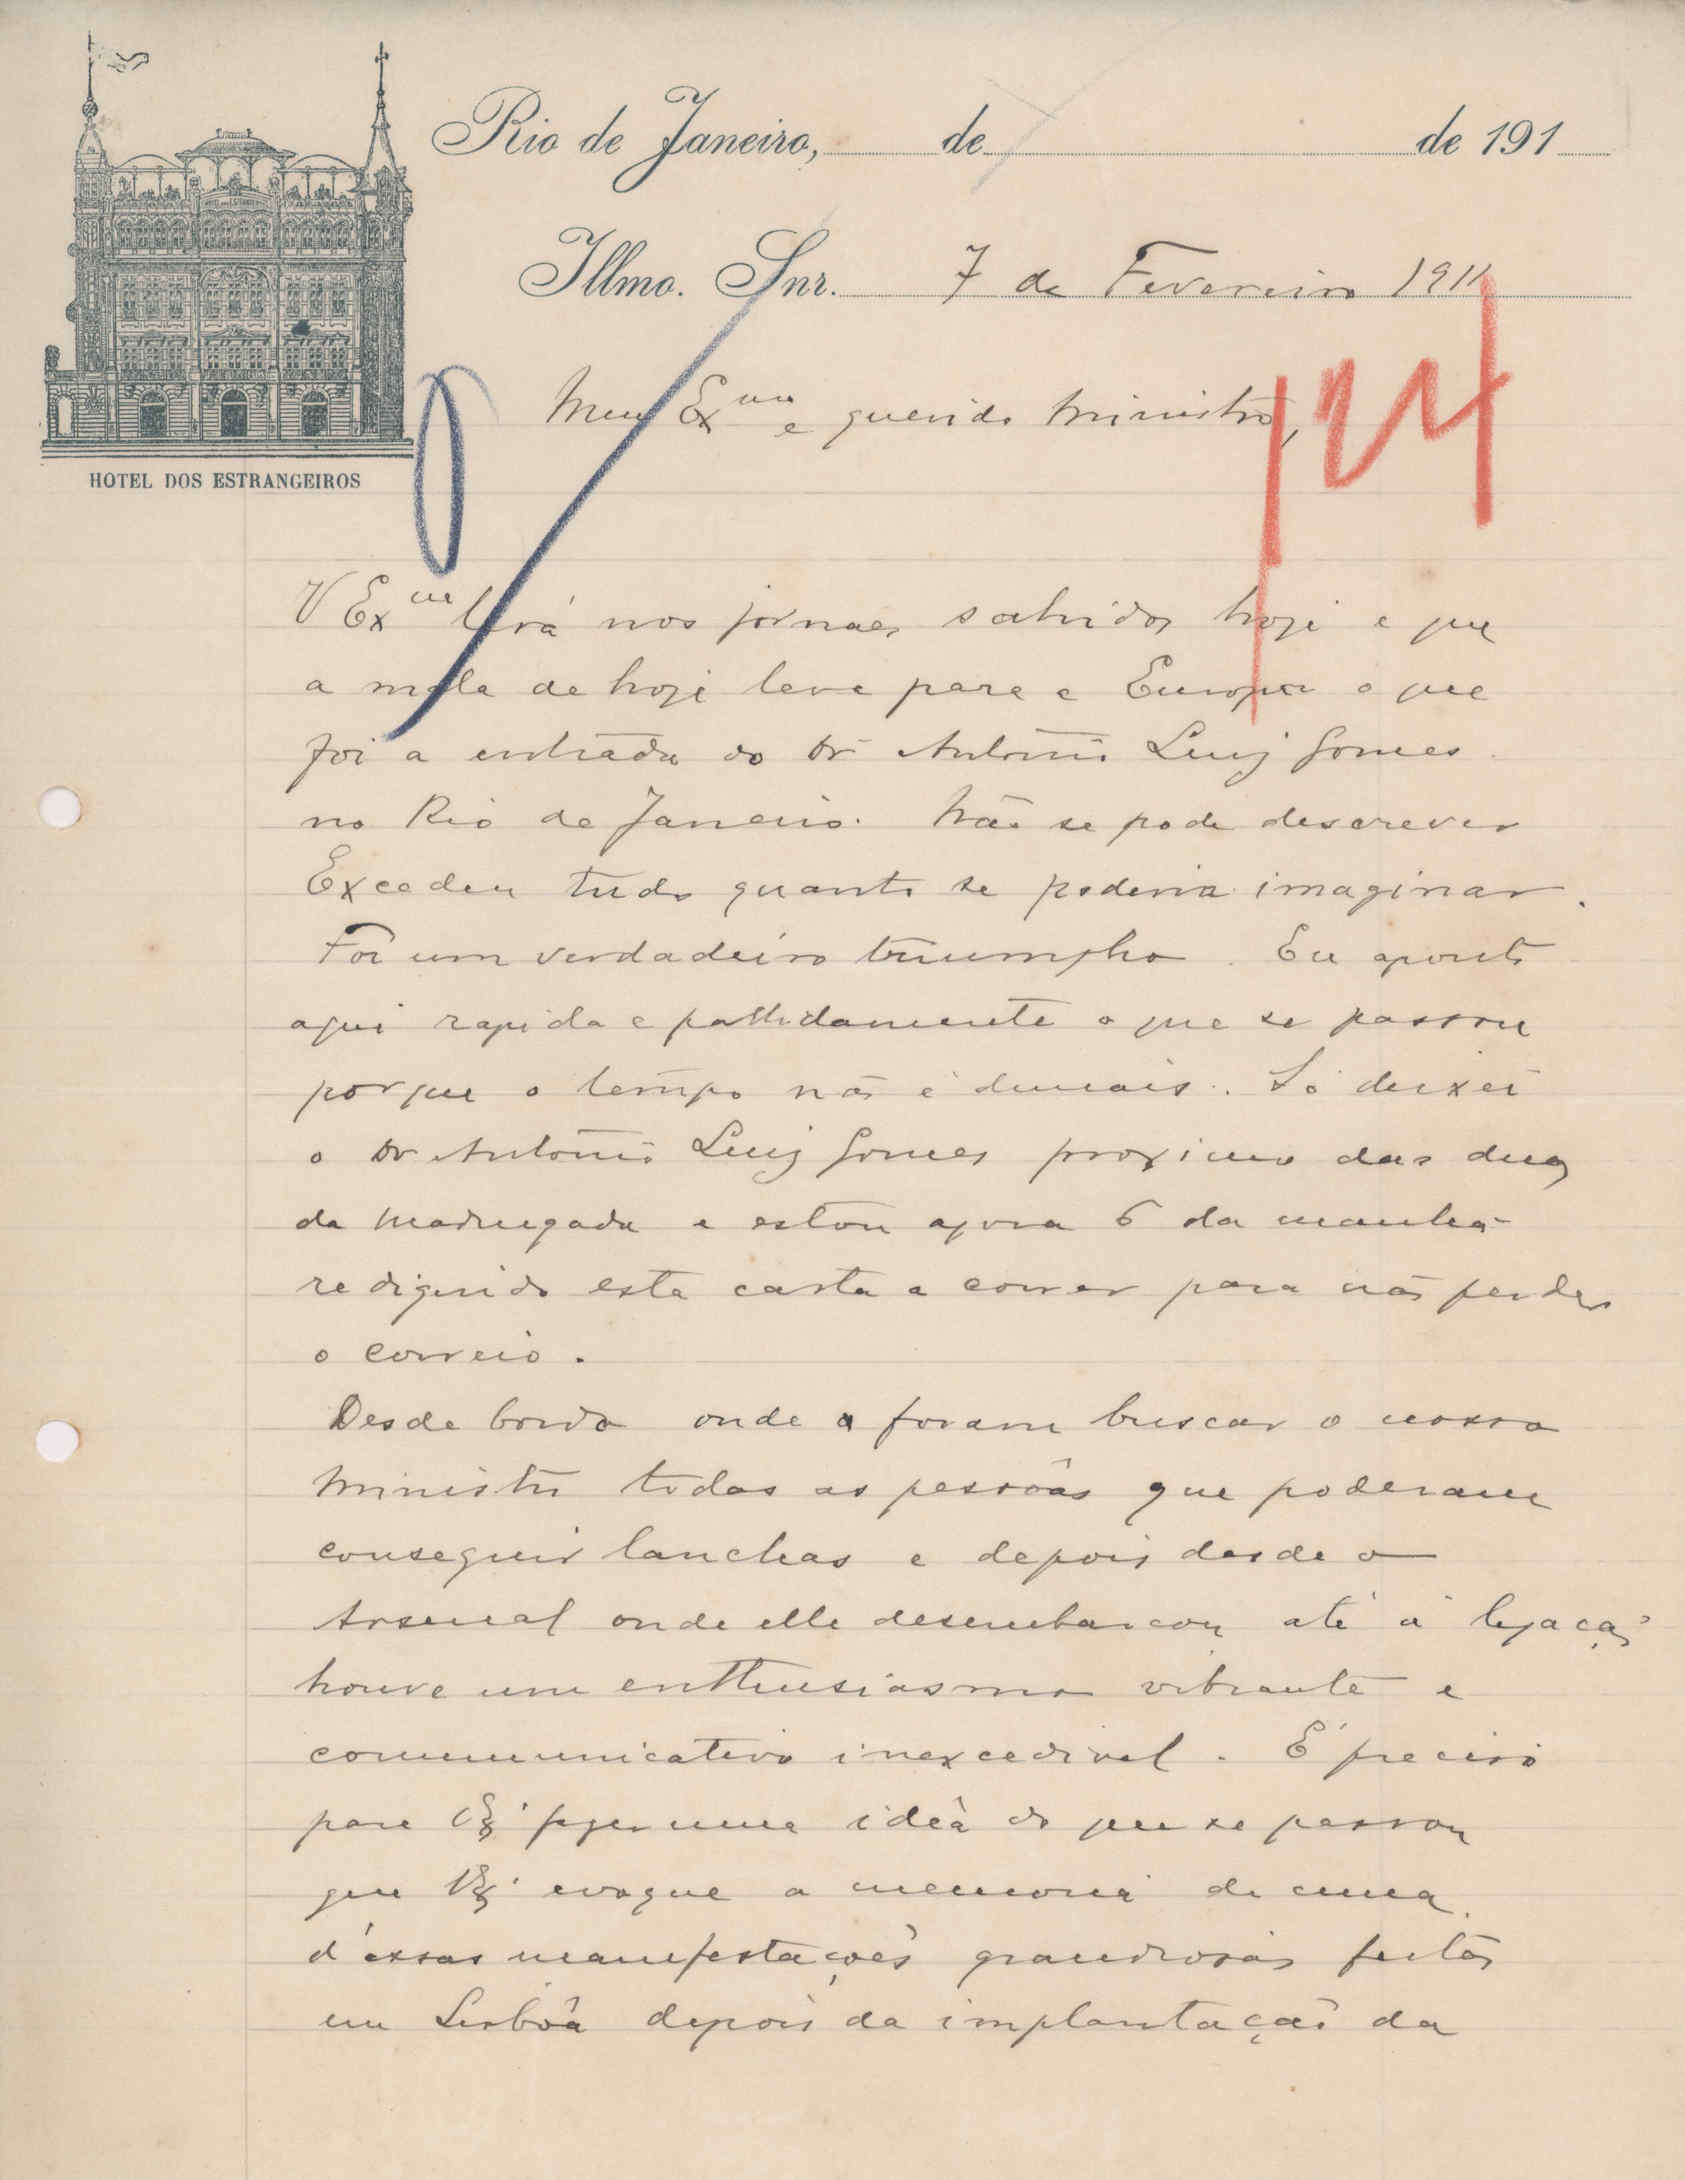 Rio de Janeiro, de de 191
Illmo. Snr. 7 de Fevereiro 1911
HOTEL DOS ESTRANGEIROS
Meu Exmo e querido Ministro,
V Excia lerá nos jornaes sahidos hoje e que
a mala de hoje leva para a Europa o que
foi a entrada do Dr Antonio Luiz Gomes
no Rio de Janeiro. Não se pode descrever
Excedeu tudo quanto se poderia imaginar.
Foi um verdadeiro triumpho. Eu aponto
aqui rapida e pallidamente o que se passou
porque o tempo não é demais. Só deixei
o Dr Antonio Luiz Gomes proximo das duas
da madrugada e estou agora 6 da manhã
redigindo esta carta a correr para não perder
o correio.
Desde bordo onde foram buscar o nosso
Ministro todas as pessôas que poderam
conseguir lanchas e depois desde o
Arsenal onde elle desembarcou até á legação
houve um enthusiasmo vibrante e
communicativo inexcedivel. É preciso
para VEx. fazer uma idêa do que se passou
que VEx. evoque a memoria de uma
d'essas manifestações grandiosas feitas
em Lisbôa depois da implantação da